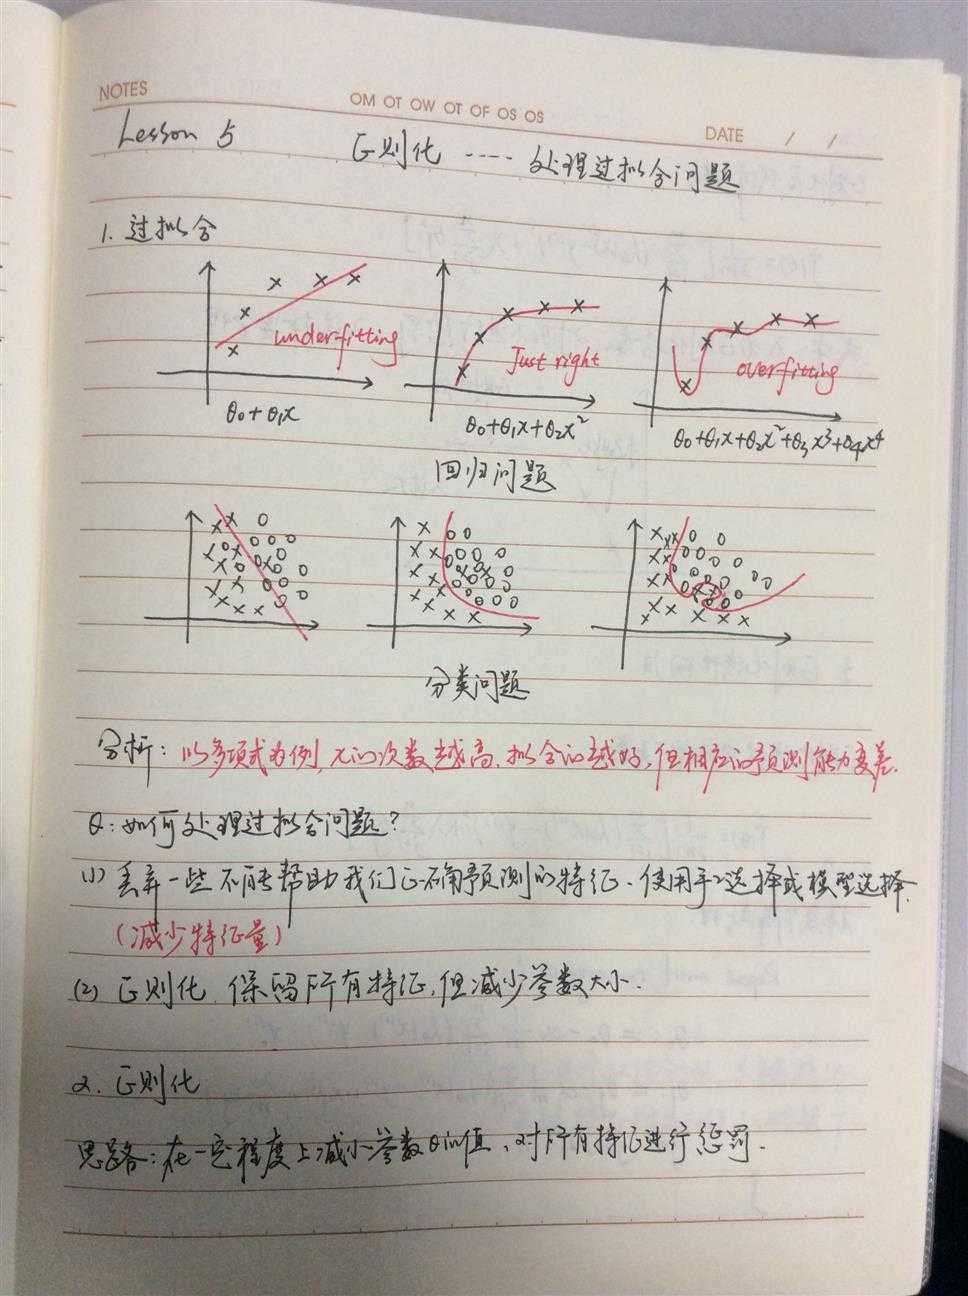 NOTES
OM OT OW OT OF OS OS
DATE / /
Lesson 5
正则化 ---- 处理过拟合问题
1. 过拟合
underfitting
Just right
overfitting
θ0+θ1x
θ0+θ1x+θ2x²
θ0+θ1x+θ2x²+θ3x³+θ4x⁴
回归问题
分类问题
分析: 以多项式为例, x的次数越高, 拟合的越好, 但相应的预测能力变差.
Q: 如何处理过拟合问题?
(1) 丢弃一些不能帮助我们正确预测的特征. 使用手工选择或模型选择.
(减少特征量)
(2) 正则化. 保留所有特征, 但减少参数大小.
2. 正则化
思路: 在一定程度上减小参数θ的值, 对所有特征进行惩罚.